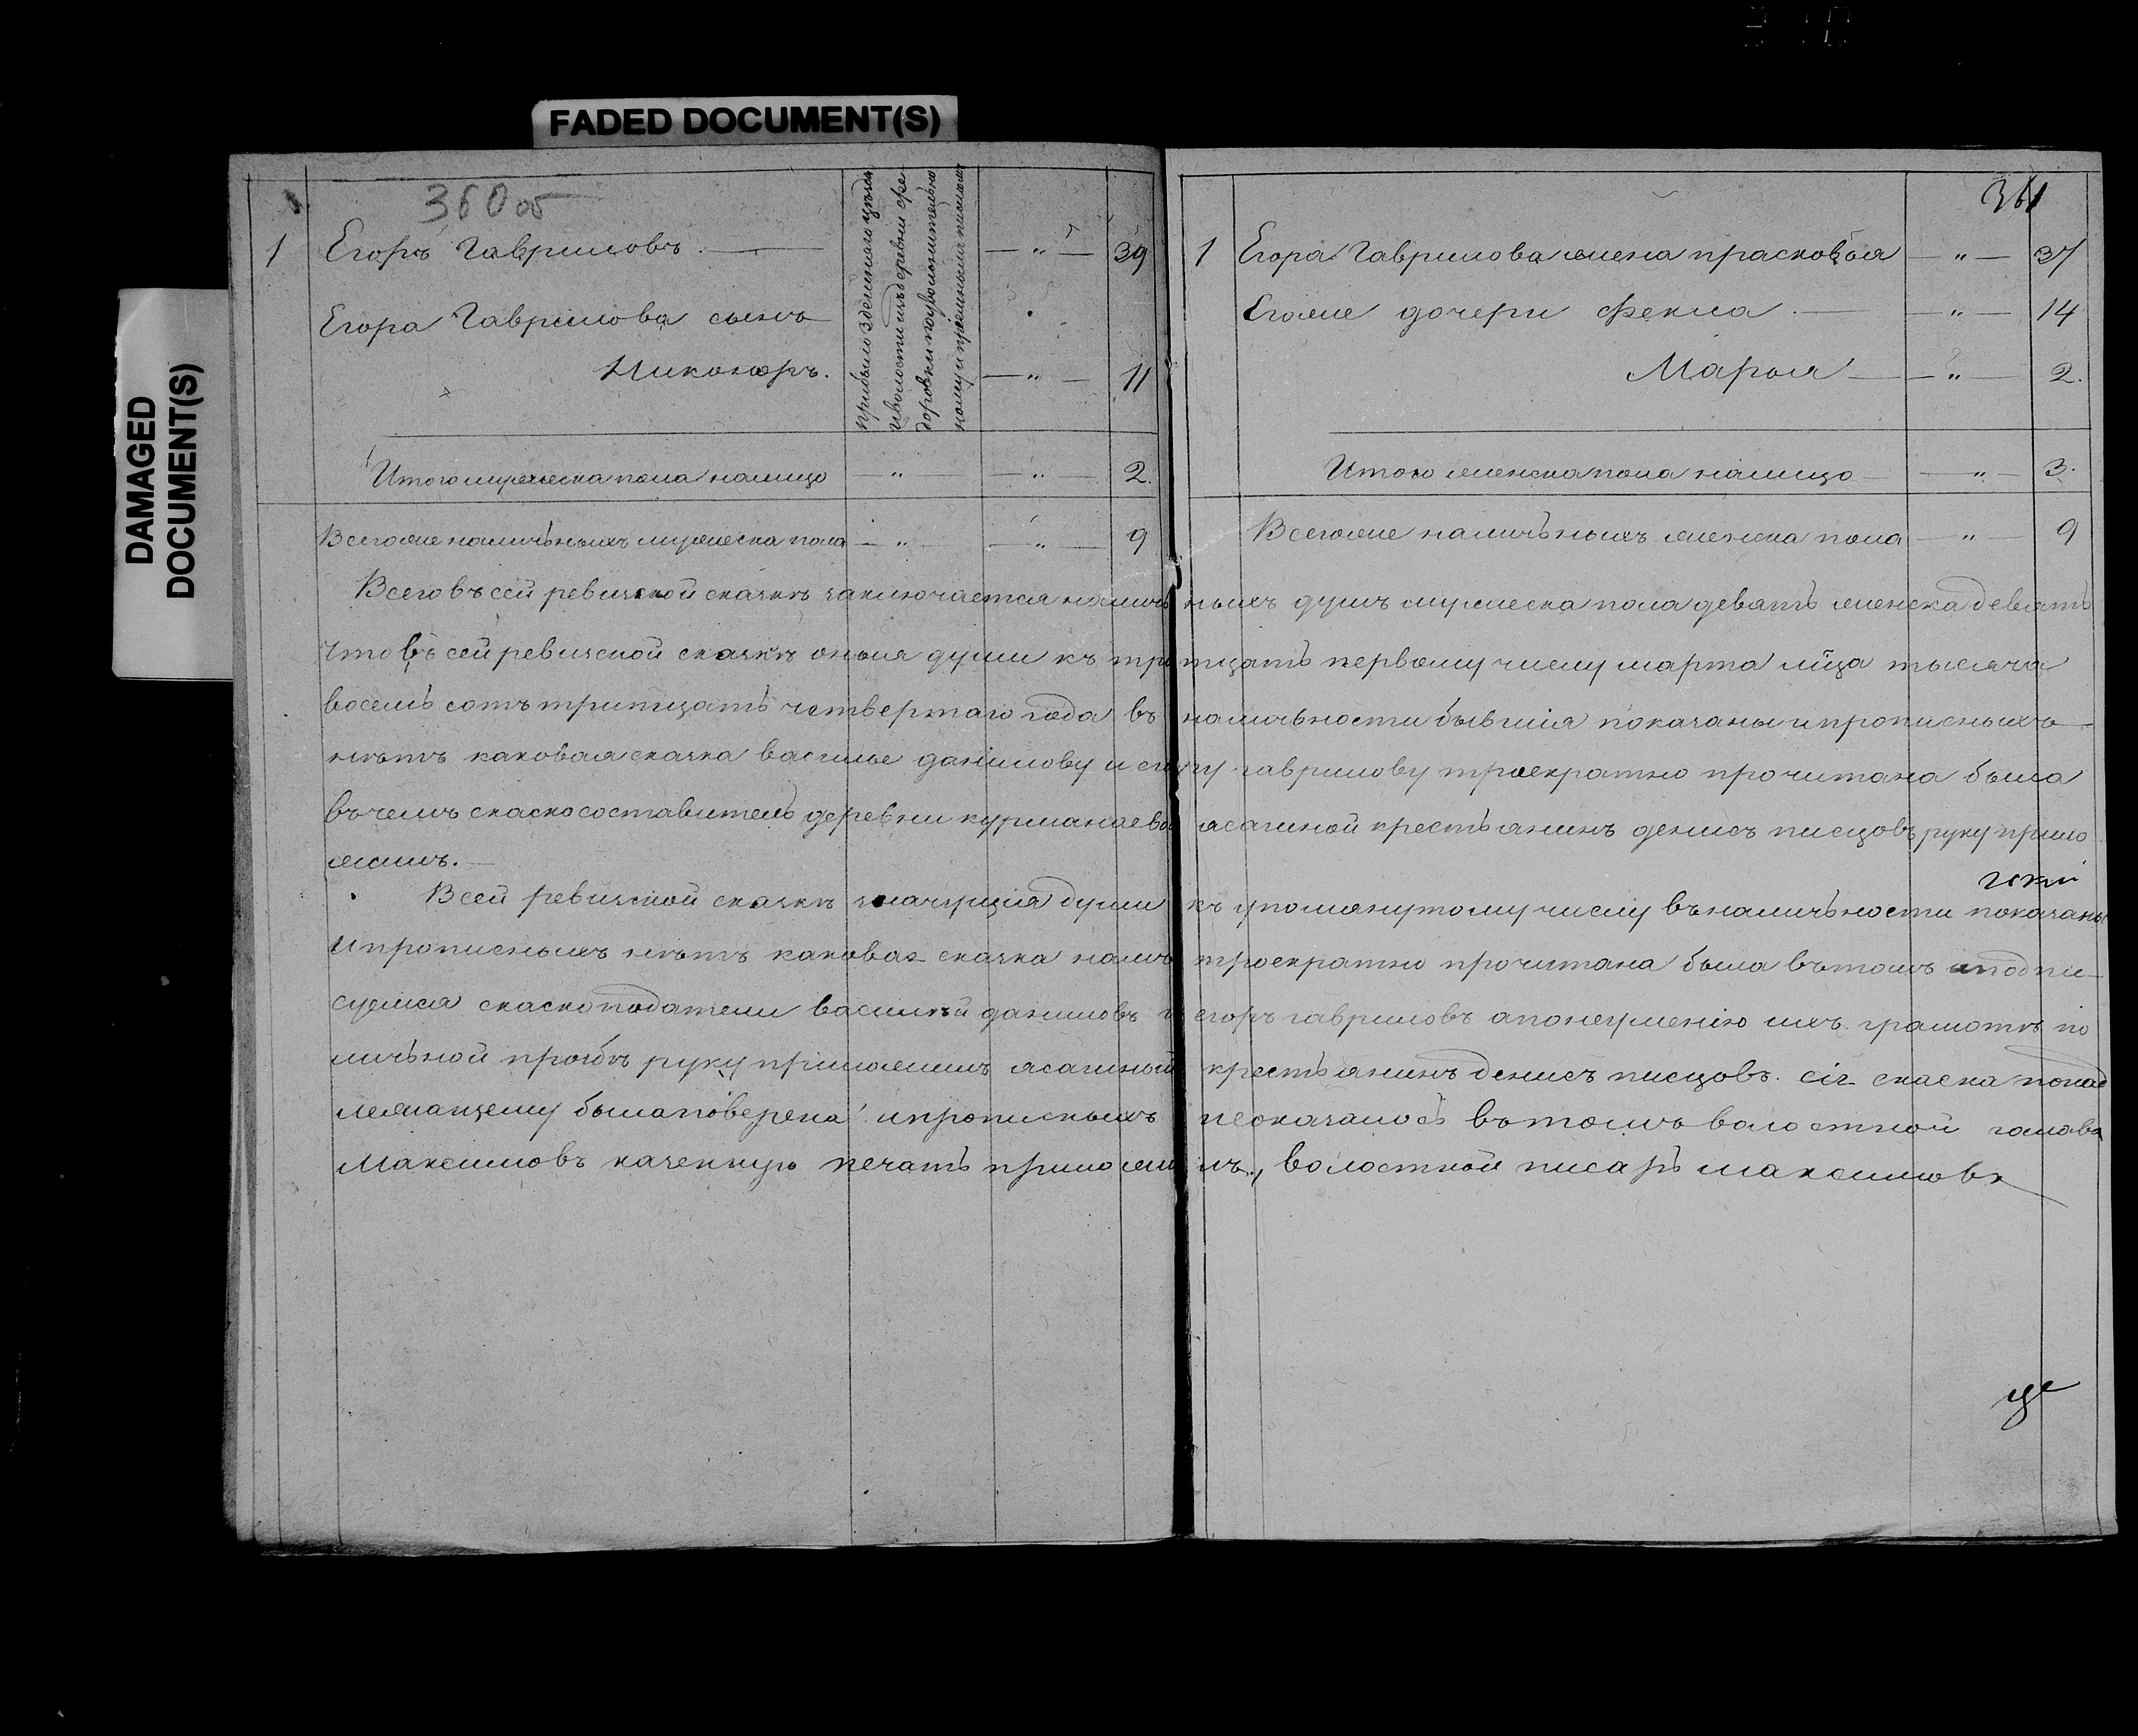 FADED DOCUMENT(S)
DAMAGED
DOCUMENT(S)
360 об
1 Егоръ Гавриловъ — " — 39
Егора Гаврилова сынъ
Никоноръ. — " — 11
прибыло здешняго уезда
доровки подволожительно
Итого мужеска пола налицо — " — " — 2.
Всегоже наличьныхъ мужеска пола — " — " — 9
361
1 Егора Гаврилова жена прасковья — " — 37
Егоже дочери Фекла — " — 14
Марья — " — 2.
Итого женска пола налицо — " — 3.
Всегоже наличьныхъ женска пола — " — 9
Всего въ сей ревизской сказкѣ заключается наличьныхъ душъ мужеска пола девять женска девять
Что въ сей ревизской сказкѣ оныя души къ тритцать первому числу марта мца тысяча
восемь сотъ тритцать четвертаго года въ наличьности бывшія показаны и прописныхъ
нѣтъ каковая сказка василью данилову и егору гаврилову троекратно прочитана была
въ чемъ сказкосоставитель деревни курманаевой ясашной крестьянинъ денисъ писцовъ руку прило
жилъ.
В сей ревизской сказкѣ значущія души къ упомянутому числу въ наличьности показаны
и прописныхъ нѣтъ каковая сказка намъ троекратно прочитана была въ томъ и подпи
суемся сказкоподатели василѣй даниловъ и егоръ гавриловъ а понеумению ихъ грамотѣ по
личьной прозбѣ руку приложилъ ясашный крестьянинъ денисъ писцовъ. сія сказка понад
лежащему была поверена и прописныхъ неоказалось въ томъ волостной голова
Максимовъ казенную печать приложилъ, волостной писарь максимовъ